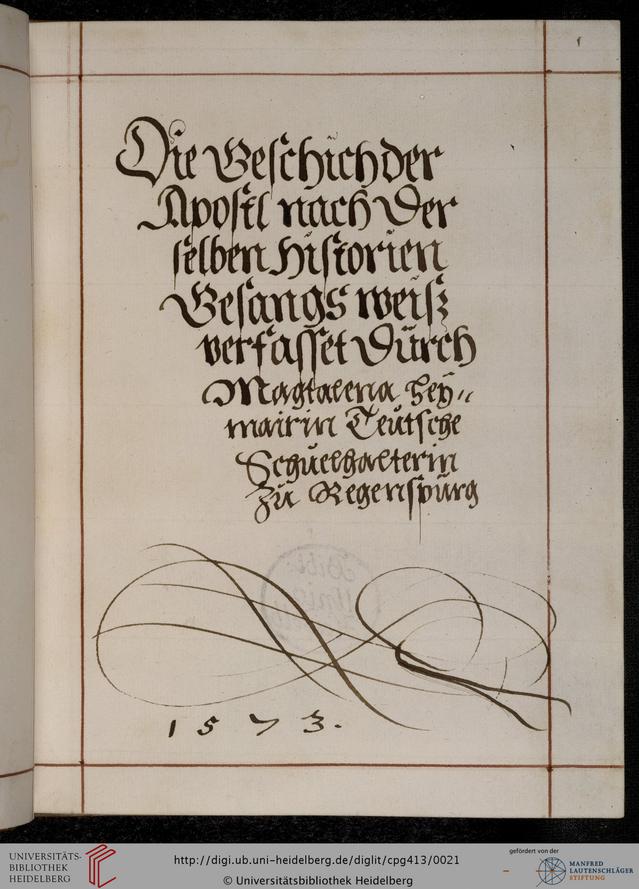 1
Die Geschich der
Apostl nach der
selben Historien
Gesangs weisz
verfasset durch
Magtalena Hey=
mairin Teutsche
Schuelhalterin
Zu Regenspurg
1573.
UNIVERSITÄTS-
BIBLIOTHEK
HEIDELBERG
http://digi.ub.uni-heidelberg.de/diglit/cpg413/0021
© Universitätsbibliothek Heidelberg
gefördert von der
MANFRED
LAUTENSCHLÄGER
STIFTUNG